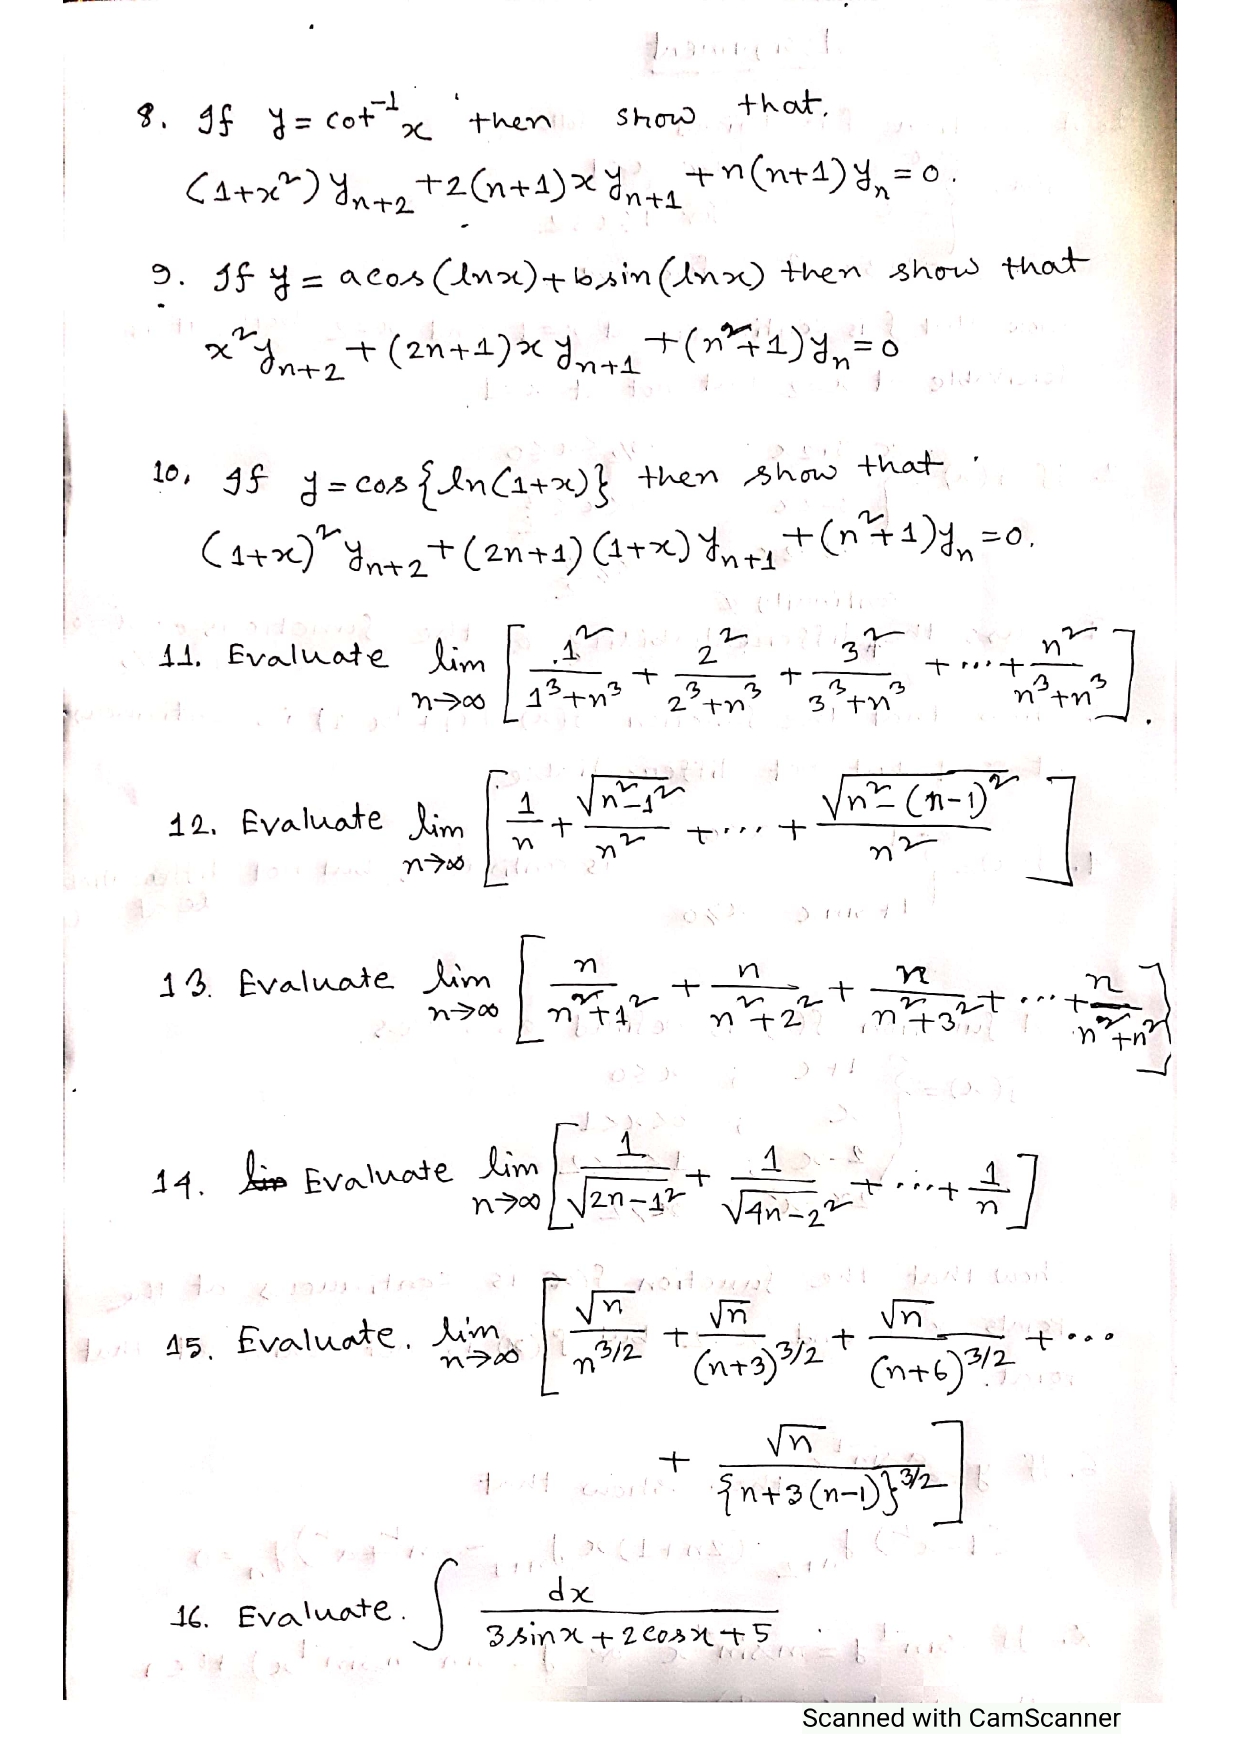 8. If y = cot⁻¹x then show that.
(1+x²) yₙ₊₂ + 2(n+1) x yₙ₊₁ + n(n+1) yₙ = 0.
9. If y = a cos(lnx) + b sin(lnx) then show that
x² yₙ₊₂ + (2n+1) x yₙ₊₁ + (n²+1) yₙ = 0
10. If y = cos{ln(1+x)} then show that
(1+x)² yₙ₊₂ + (2n+1) (1+x) yₙ₊₁ + (n²+1) yₙ = 0.
11. Evaluate lim n→∞ [ 1²/(1³+n³) + 2²/(2³+n³) + 3²/(3³+n³) + ... + n²/(n³+n³) ].
12. Evaluate lim n→∞ [ 1/n + √(n²-1²)/n² + ... + √(n²-(n-1)²)/n² ]
13. Evaluate lim n→∞ [ n/(n²+1²) + n/(n²+2²) + n/(n²+3²) + ... + n/(n²+n²) ]
14. Evaluate lim n→∞ [ 1/√(2n-1²) + 1/√(4n-2²) + ... + 1/n ]
15. Evaluate. lim n→∞ [ √n/n^(3/2) + √n/(n+3)^(3/2) + √n/(n+6)^(3/2) + ...
+ √n/{n+3(n-1)}^(3/2) ]
16. Evaluate. ∫ dx/(3sinx + 2cosx + 5)
Scanned with CamScanner